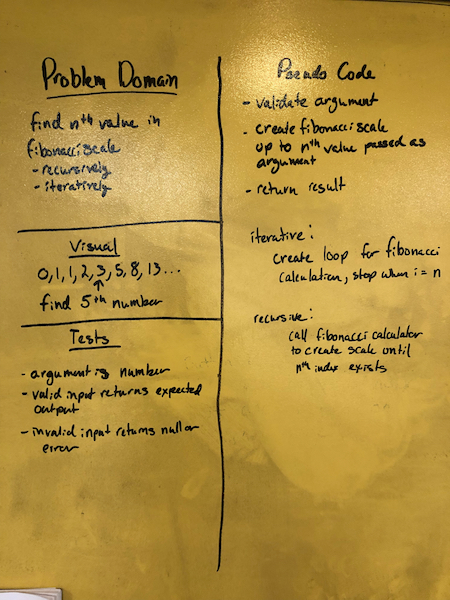 Problem Domain
find nth value in
fibonacci scale
- recursively
- iteratively
Visual
0,1,1,2,3,5,8,13...
find 5th number
Tests
- argument is number
- valid input returns expected
output
- invalid input returns null or
error
Pseudo Code
- validate argument
- create fibonacci scale
up to nth value passed as
argument
- return result
iterative:
create loop for fibonacci
calculation, stop when i = n
recursive:
call fibonacci calculator
to create scale until
nth index exists